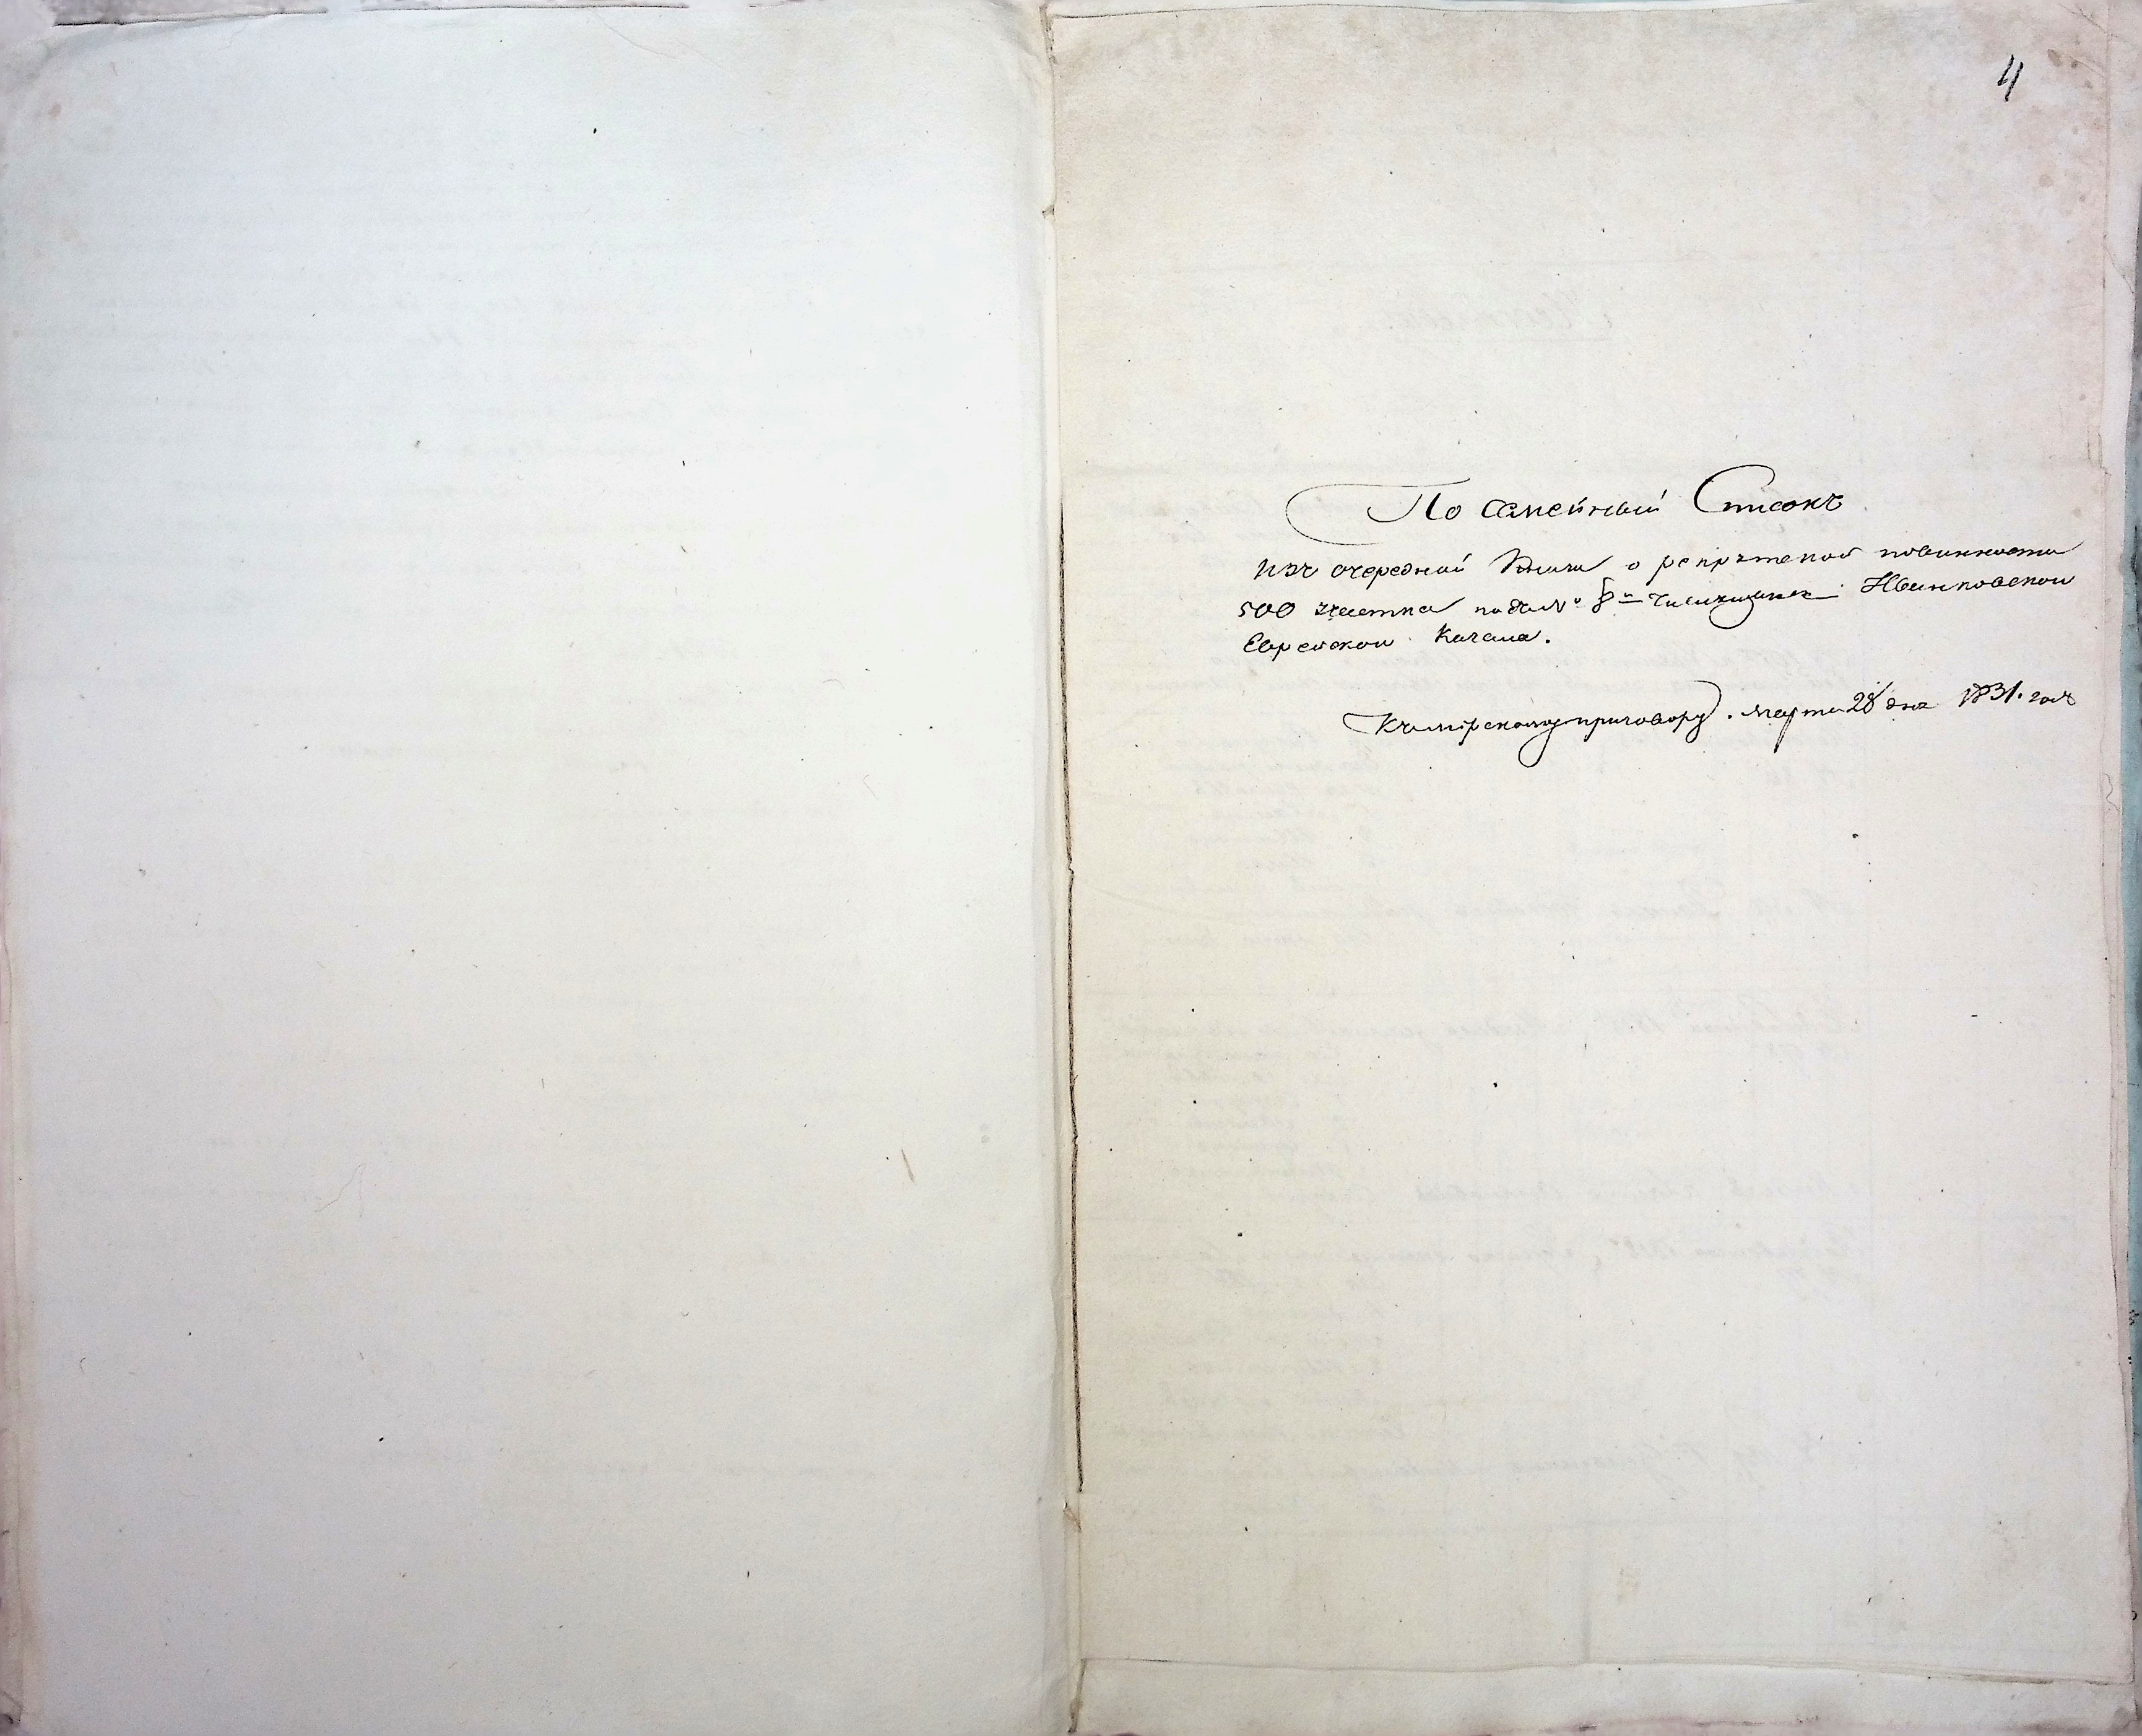 4
По семейный Списокъ
изъ очередной Книги о рекрутской повинности
500 участка подъ № 8м числящимся Ивенковской
Еврейской Кагала.
Къ мирскому приговору. Марта 28 дня 1831. года